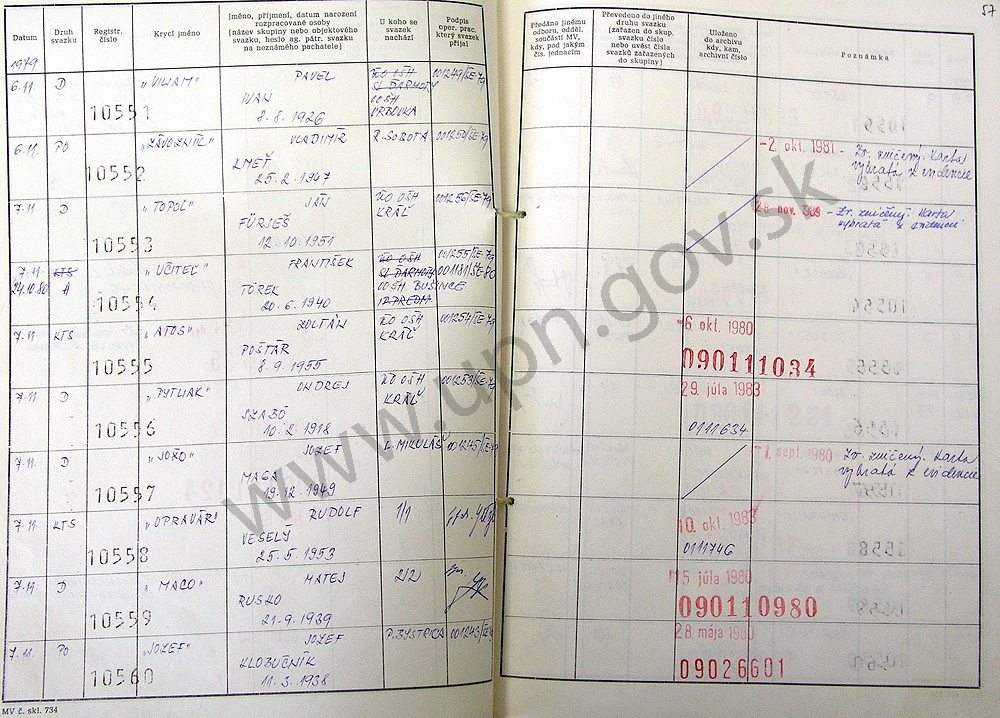 57
Datum
Druh svazku
Registr. číslo
Krycí jméno
Jméno, příjmení, datum narození
rozpracované osoby
(název skupiny nebo objektového
svazku, heslo ag. pátr. svazku
na neznámého pachatele)
U koho se
svazek
nachází
Podpis
oper. prac.
který svazek
přijal
Předáno jinému
odboru, odděl.
součásti MV,
kdy, pod jakým
čís. jednacím
Převedeno do jiného
druhu svazku
(zařazen do skup.
svazku číslo
nebo uvést čísla
svazků zařazených
do skupiny)
Uloženo
do archivu
kdy, kam,
archivní číslo
Poznámka
1979
6.11. D 10551 "VILIAM" PAVEL
IVAN
8. 8. 1926
KO OŠH
SL ĎARMOTY
OOŠH
VRBOVKA
001249/ŠE-79
6.11. PO 10552 "ZÁVOZNÍK" VLADIMÍR
KMEŤ
25. 2. 1947
R. SOBOTA
001250/ŠE-79
-2. okt. 1981 - Zv. zničený. Karta
vybratá z evidencie
7.11 D 10553 "TOPOĽ" JÁN
FÜRJEŠ
12. 10. 1951
KO OŠH
KRÁĽ
001256/ŠE-79
28. nov. 1989 - Zv. zničený. Karta
vybratá z evidencie
7.11. KTS
24.10.80 A
10554 "UČITEĽ" FRANTIŠEK
TÖREK
20. 6. 1940
KO OŠH
SL ĎARMOTY
OOŠH BUŠINCE
001255/ŠE-79
001181/ŠE-80
7.11 KTS 10555 "ATOS" ZOLTÁN
POŠTÁR
8. 9. 1955
KO OŠH
KRÁĽ
001254/ŠE-79
-6. okt. 1980
090111034
7.11. D 10556 "PYTLIAK" ONDREJ
SZABÓ
10. 2. 1918
KO OŠH
KRÁĽ
001253/ŠE-79
29. júla 1983
0111634
7.11. D 10557 "JOŽO" JOZEF
MAGA
19. 12. 1949
L. MIKULÁŠ
001245/ŠE-79
-1. sept. 1980 Zv. zničený. Karta
vybratá z evidencie
7.11. KTS 10558 "OPRAVÁR" RUDOLF
VESELÝ
25. 5. 1953
1/1
10. okt. 1983
0111746
7.11. D 10559 "MACO" MATEJ
RUSKO
21. 9. 1939
2/2
15 júla 1980
090110980
7.11. PO 10560 "JOZEF" JOZEF
KLOBUČNÍK
11. 3. 1938
P. BYSTRICA
001243/ŠE-79
28. mája 1980
09026601
MV č. skl. 734
www.upn.gov.sk